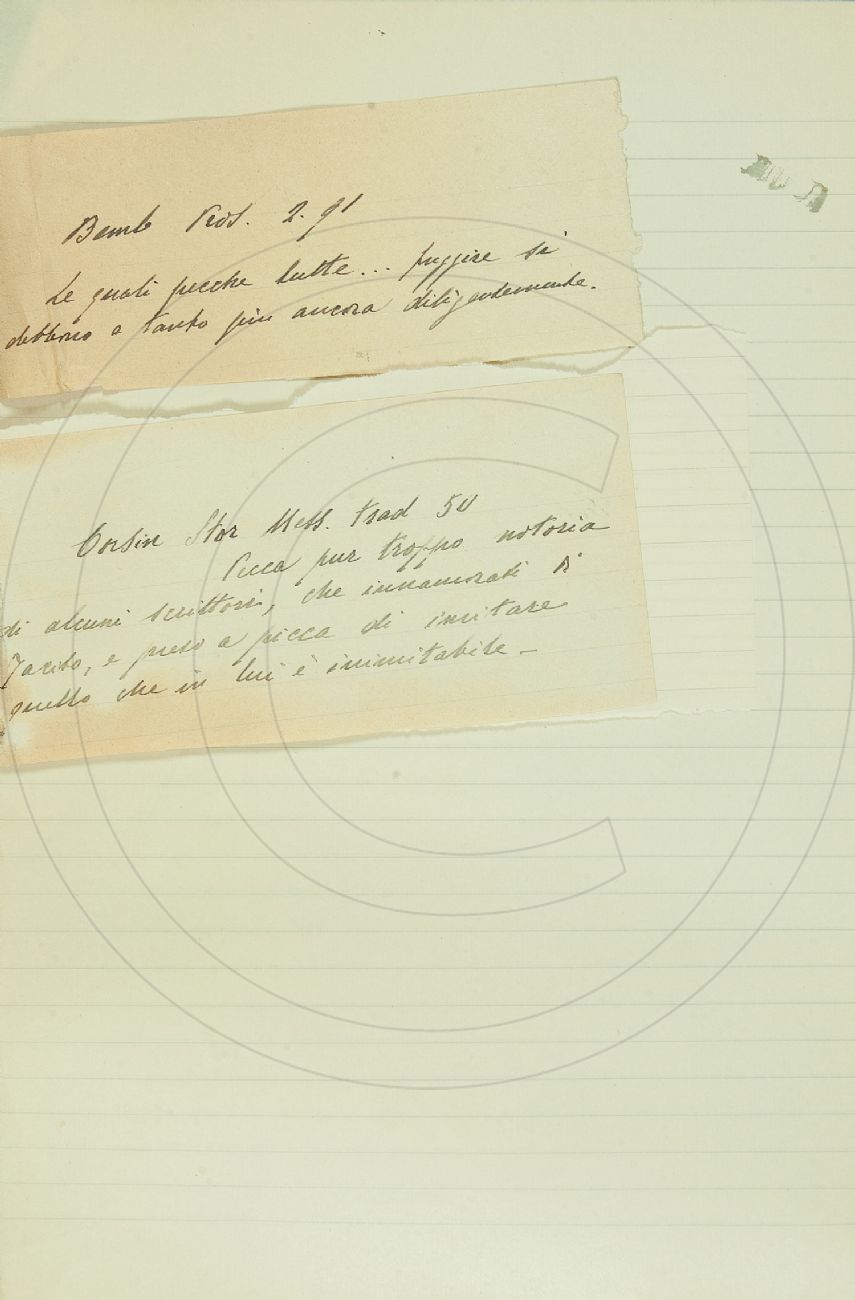 Bemb Pros. 2. 91
Le quali pecche tutte... fuggire si
debbono e tanto piu ancora diligentemente.
Corsin Stor Mess. trad 50
Picca pur troppo notoria
di alcuni scrittori, che innamorati di
Tacito, e preso a picca di imitare
quello che in lui è inimitabile -